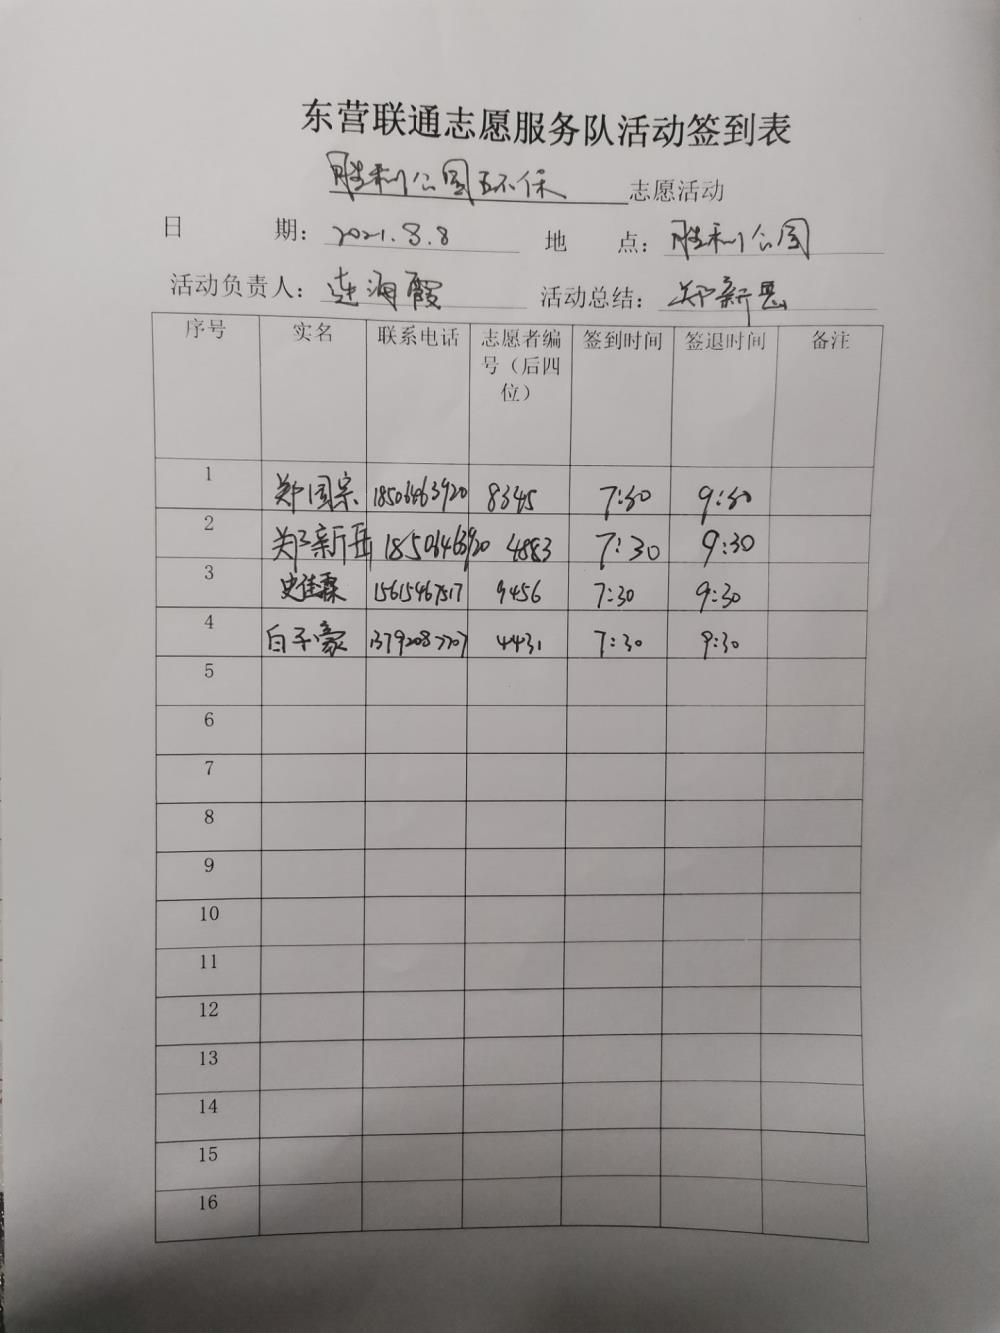 东营联通志愿服务队活动签到表
胜利公园环保 志愿活动
日 期：2021.8.8 地 点：胜利公园
活动负责人：连海霞 活动总结：郑新岳
序号 实名 联系电话 志愿者编号（后四位） 签到时间 签退时间 备注
1 郑国宗 18506463920 8345 7:30 9:30
2 郑新岳 18506463920 4883 7:30 9:30
3 史佳霖 15615467517 9456 7:30 9:30
4 白子豪 13792087707 4431 7:30 9:30
5
6
7
8
9
10
11
12
13
14
15
16